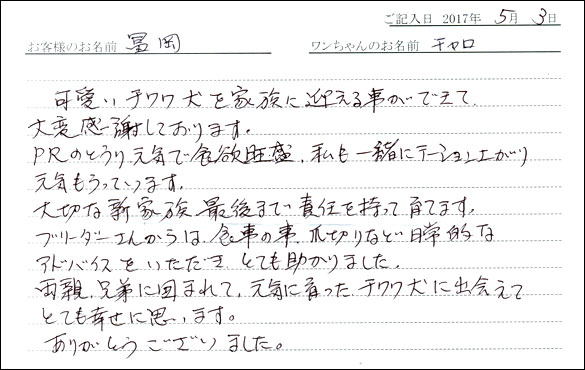 ご記入日 2017年 5月 3日
お客様のお名前 冨岡 ワンちゃんのお名前 チャロ
可愛いチワワ犬を家族に迎える事ができて
大変感謝しております。
PRのとうり元気で食欲旺盛、私も一緒にテーション上がり
元気もらっています。
大切な新家族 最後まで責任を持って育てます。
ブリーダーさんからは、食事の事、爪切りなど日常的な
アドバイスをいただき とても助かりました。
両親、兄弟に囲まれて、元気に育った チワワ犬に出会えて
とても幸せに思います。
ありがとうございました。